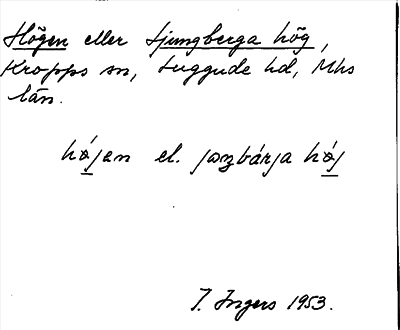 Högen eller Ljungberga hög,
Kropps sn, Luggude hd, Mhs
län.
hǿjen el. jɔŋbárja hǿj
I. Ingers 1953.